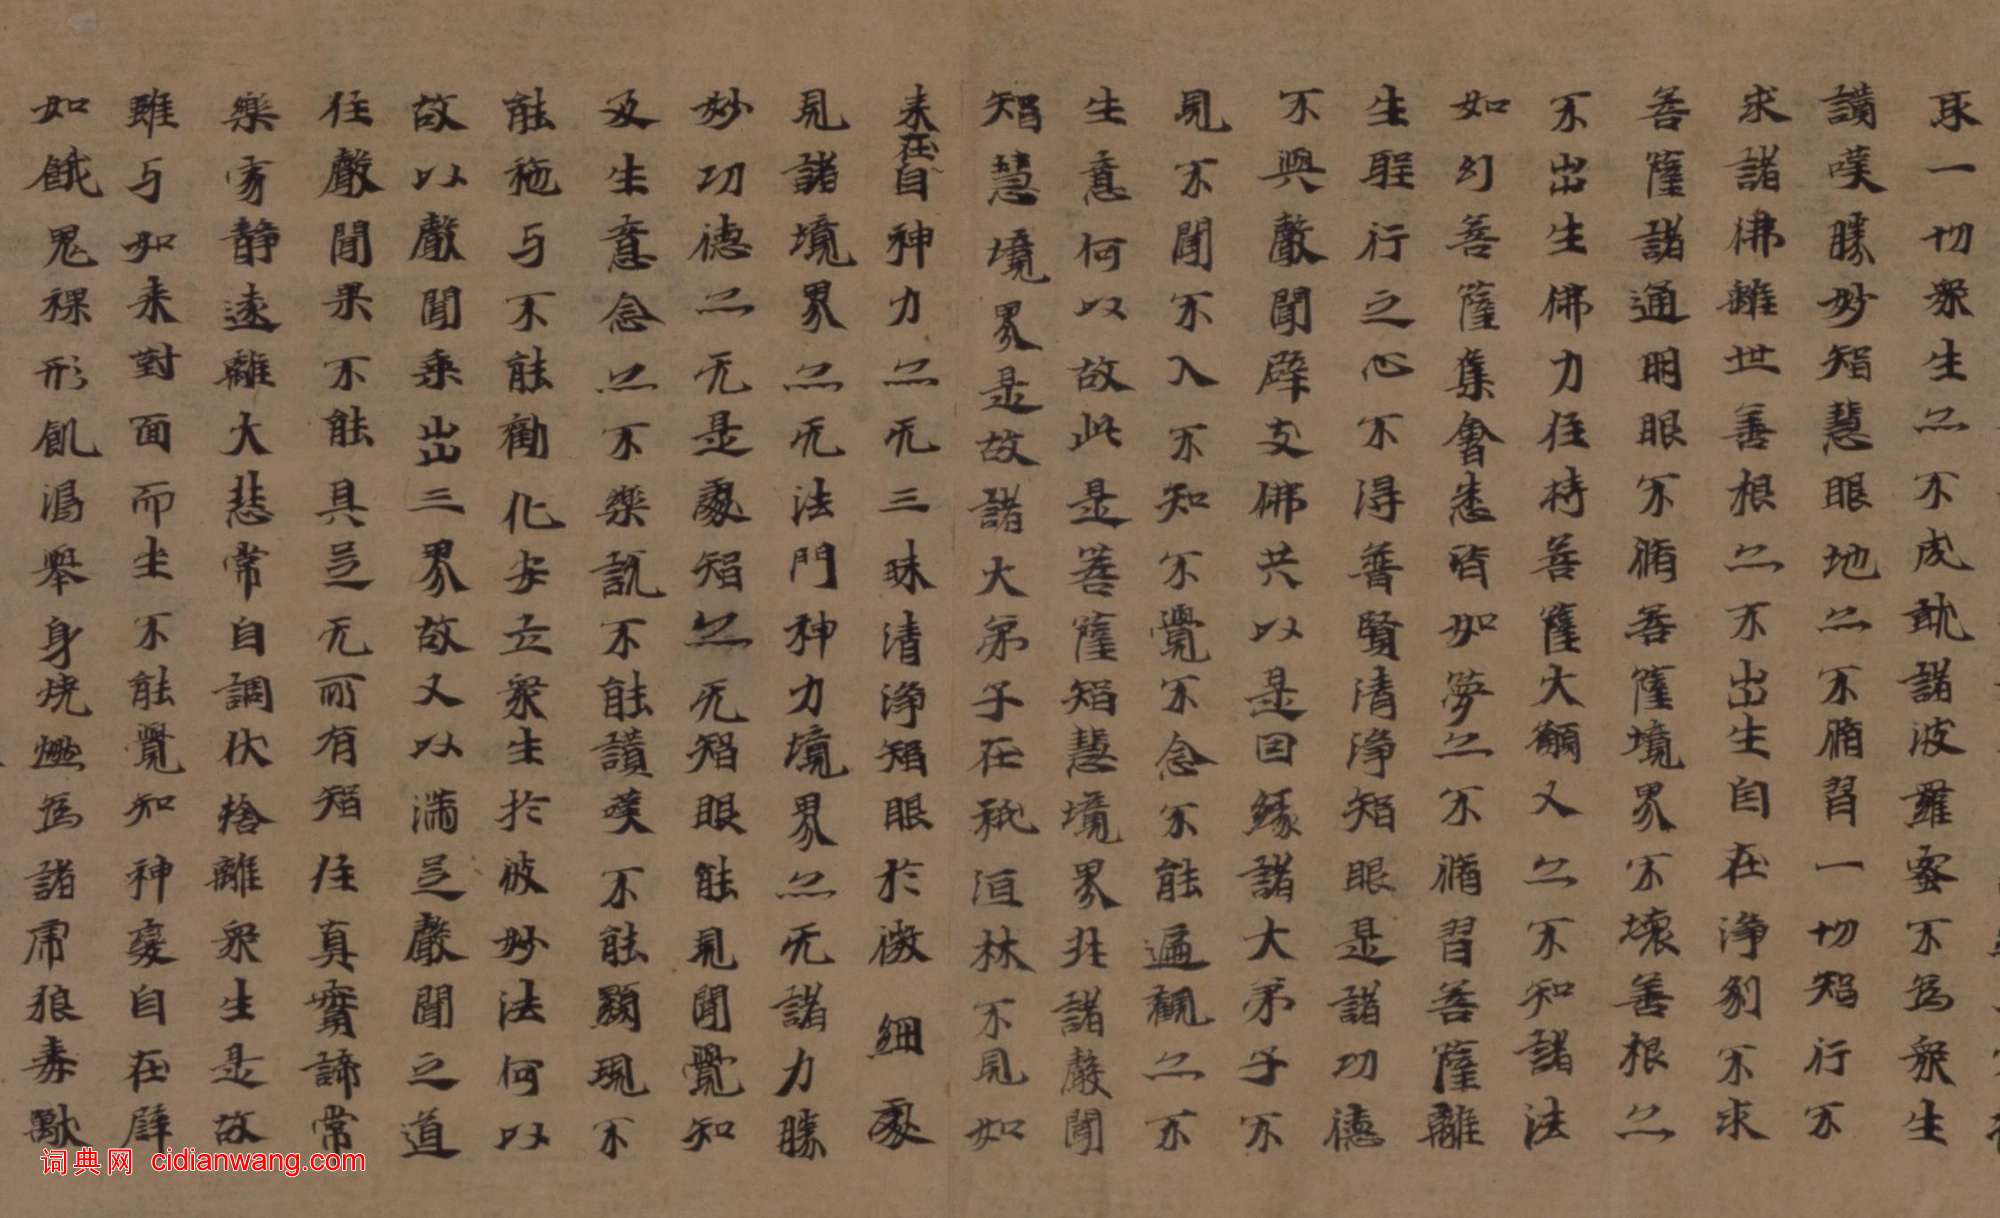 乐一切衆生亦不成就諸波羅蜜不為衆生
讃嘆勝妙智慧眼地亦不脩習一切智行不
求諸佛離世善根亦不出生自在淨刹不求
菩薩諸通明眼不脩菩薩境界不壞善根亦
不出生佛力住持菩薩大願又亦不知諸法
如幻菩薩集會悉皆如夢亦不脩習菩薩離
生聖行之心不得普賢清淨智眼是諸功德
不與聲聞辟支佛共以是因緣諸大弟子不
見不聞不入不知不覺不念不能遍觀亦不
生意何以故此是菩薩智慧境界非諸聲聞
智慧境界是故諸大弟子在祇洹林不見如
来在自神力亦无三昧清淨智眼於微細處
見諸境界亦无法門神力境界亦无諸力勝
妙功德亦无是處智亦无智眼能見聞覺知
及生意念亦不樂説不能讃嘆不能顯現不
能施与不能勸化安立衆生於彼妙法何以
故以聲聞乗出三界故又以滿足聲聞之道
住聲聞果不能具足无所有智住真實諦常
樂寂静遠離大悲常自調伏捨離衆生是故
雖与如来對面而坐不能覺知神變自在辟
如餓鬼裸形飢渴舉身燒燃為諸虎狼毒獸
词典网 cidianwang.com